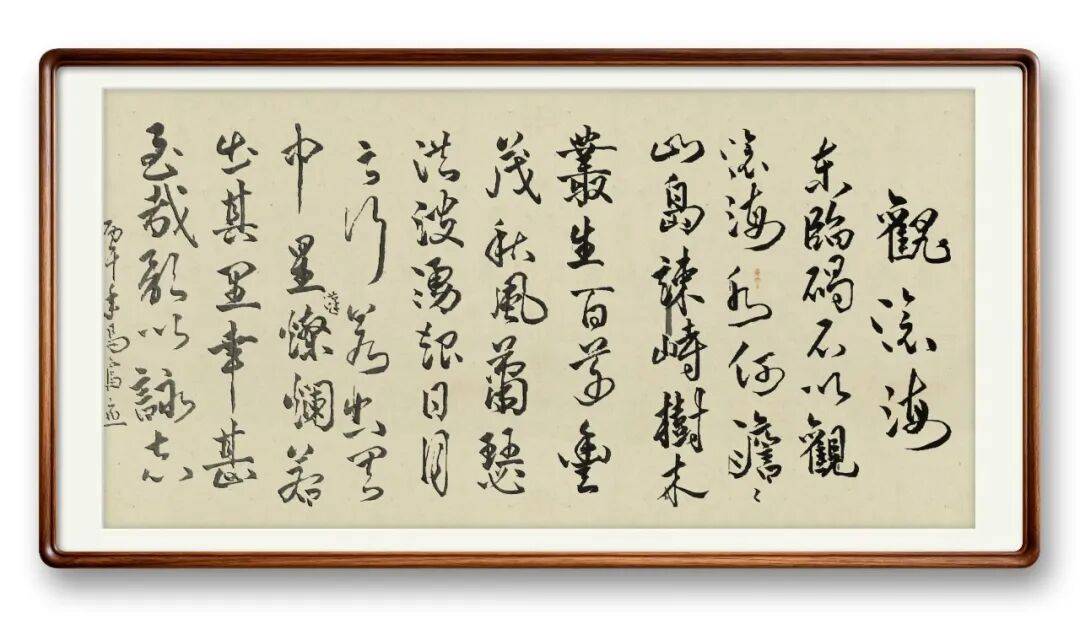 觀滄海
東臨碣石以觀
滄海水何澹〻
山島竦峙樹木
叢生百草豐
茂秋風蕭瑟
洪波湧起日月
之行若出其
中星漢燦爛若
出其里幸甚
至哉歌以詠志
丙午年